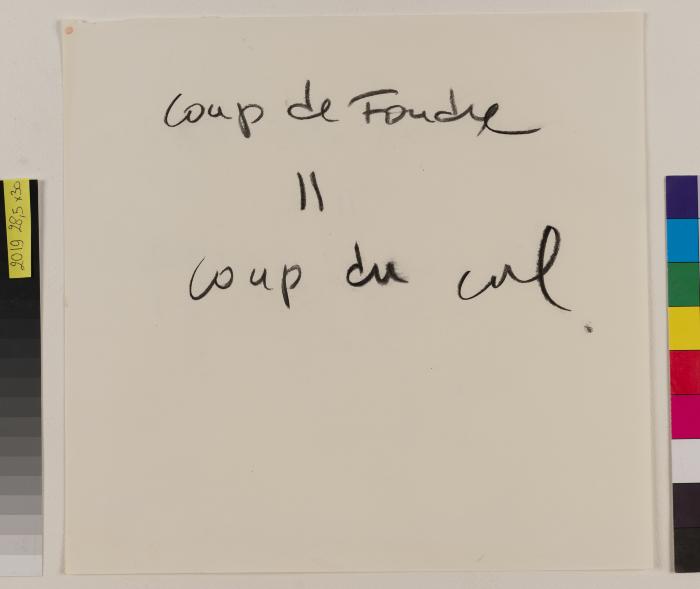 coup de Foudre
=
coup du cul.
2019 28,5 x30